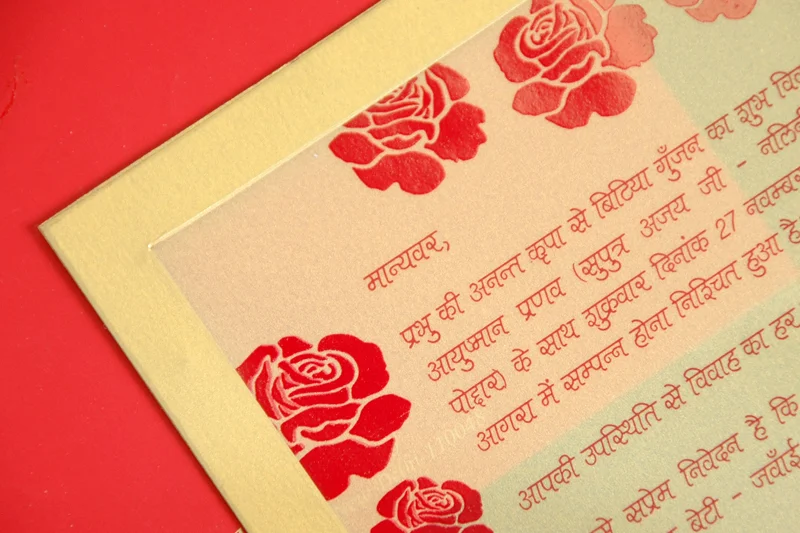 मान्यवर,
प्रभु की अनन्त कृपा से बिटिया गुँजन का शुभ
आयुष्मान प्रणव (सुपुत्र अजय जी - नलिनी
पोद्दार) के साथ शुक्रवार दिनांक 27 नवम्बर
आगरा में सम्पन्न होना निश्चित हुआ है
आपकी उपस्थिति से विवाह का हर
से सप्रेम निवेदन है कि
बेटी - जवाँई